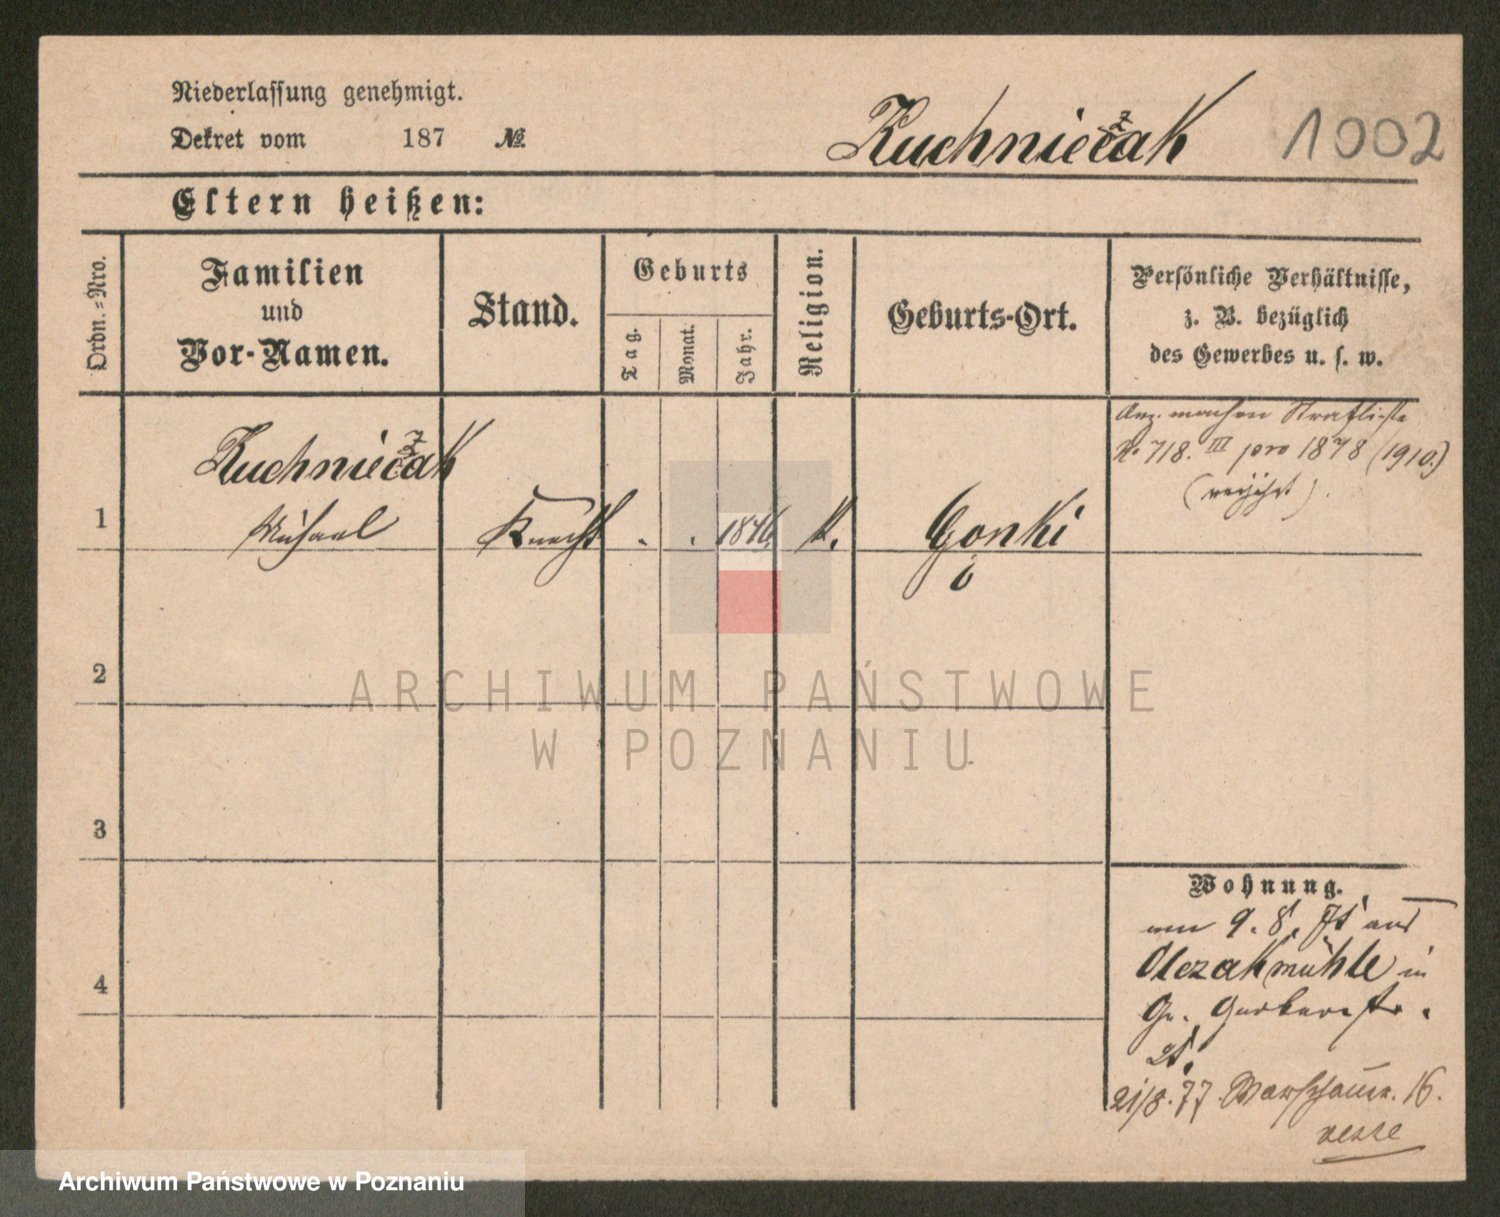 Niederlassung genehmigt.
Dekret vom 187 №
Kuchnieczak 1002
Eltern heißen:
Ordn.-Nro.
Familien
und
Vor-Namen.
Stand.
Geburts
Tag.
Monat.
Jahr.
Religion.
Geburts-Ort.
Persönliche Verhältnisse,
z. B. bezüglich
des Gewerbes u. s. w.
Anz. machen Strafliste
No 718. III pro 1878 (1910.)
(verjährt).
Kuchnieczak
1 Michael Knecht . . 1846. k. Gonki
ó
2
3
4
Wohnung.
am 9. 8. 75 aus
Olczakmühle in
Gr. Gerberstr.
21/8. 77 Warschauer. 16.
ARCHIWUM PAŃSTWOWE
W POZNANIU
Archiwum Państwowe w Poznaniu